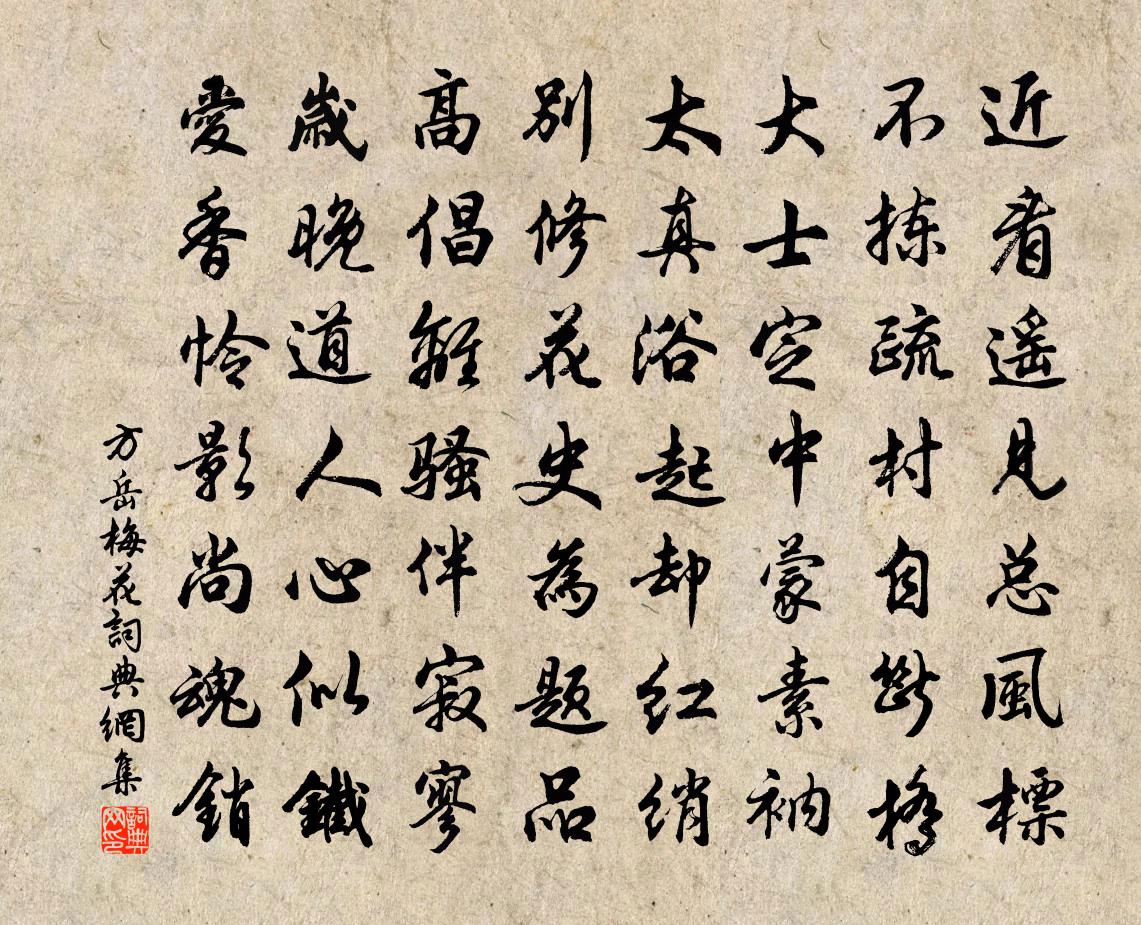 近看遥見总風標
不拣疏村自断橋
大士定中蒙素衲
太真浴起却红绡
别修花史為题品
高倡離騷伴寂寥
歲晚道人心似鐵
愛香怜影尚魂銷
方岳梅花詞典網集
詞典网印